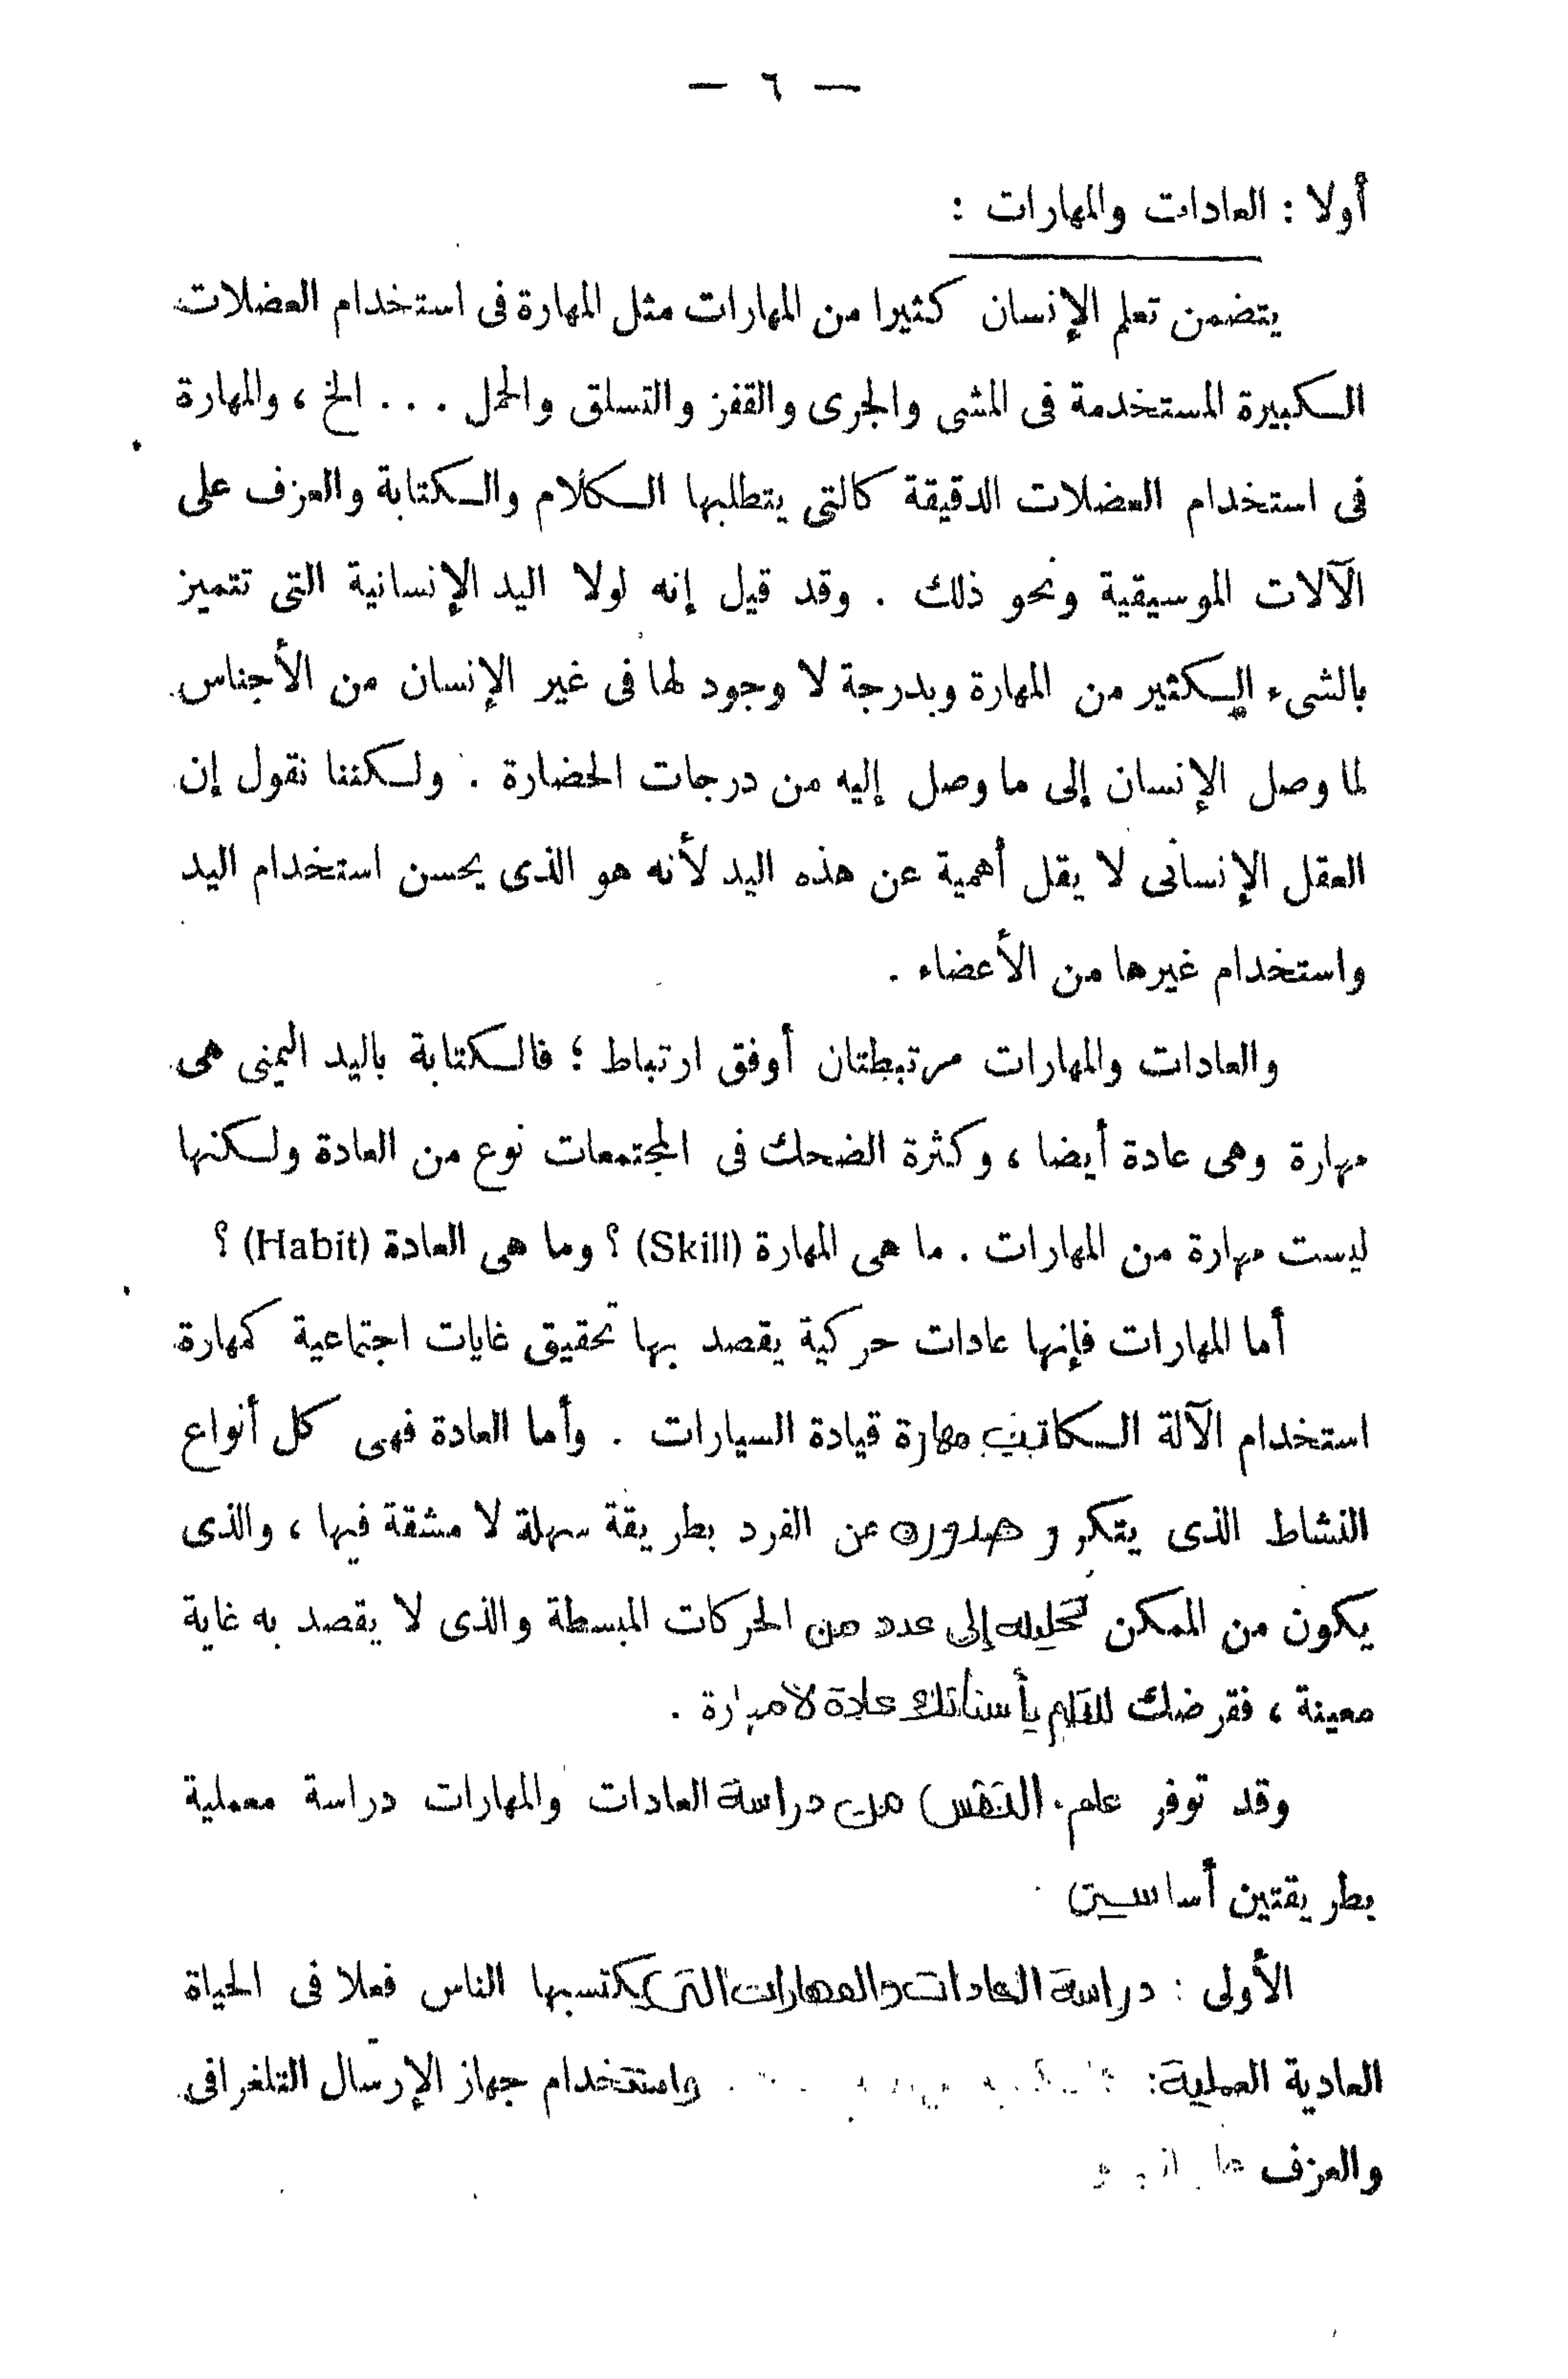 — ٦ —
أولا : العادات والمهارات :
يتضمن تعلم الإنسان كثيرا من المهارات مثل المهارة فى استخدام العضلات
الكبيرة المستخدمة فى المشى والجرى والقفز والتسلق والحمل . . . الخ ، والمهارة
فى استخدام العضلات الدقيقة كالتى يتطلبها الكلام والكتابة والعزف على
الآلات الموسيقية ونحو ذلك . وقد قيل إنه لولا اليد الإنسانية التى تتميز
بالشىء الكثير من المهارة وبدرجة لا وجود لها فى غير الإنسان من الأجناس
لما وصل الإنسان إلى ما وصل إليه من درجات الحضارة . ولكننا نقول إن
العقل الإنسانى لا يقل أهمية عن هذه اليد لأنه هو الذى يحسن استخدام اليد
واستخدام غيرها من الأعضاء .
والعادات والمهارات مرتبطتان أوفق ارتباط ؛ فالكتابة باليد اليمنى هى
مهارة وهى عادة أيضا ، وكثرة الضحك فى المجتمعات نوع من العادة ولكنها
ليست مهارة من المهارات . ما هى المهارة (Skill) ؟ وما هى العادة (Habit) ؟
أما المهارات فإنها عادات حركية يقصد بها تحقيق غايات اجتماعية كمهارة
استخدام الآلة مهارة قيادة السيارات . وأما العادة فهى كل أنواع
النشاط الذى يتكرر صدوره عن الفرد بطريقة سهلة لا مشقة فيها ، والذى
يكون من الممكن تحليله إلى عدد من الحركات المبسطة والذى لا يقصد به غاية
معينة ، فقرضك للقلم بأسنانك عادة لا مهارة .
وقد توفر علم النفس من دراسة العادات والمهارات دراسة معملية
بطريقتين أساسيتين
الأولى : دراسة العادات والمهارات التى يكتسبها الناس فعلا فى الحياة
العادية العملية : واستخدام جهاز الإرسال التلغرافى
والعزف